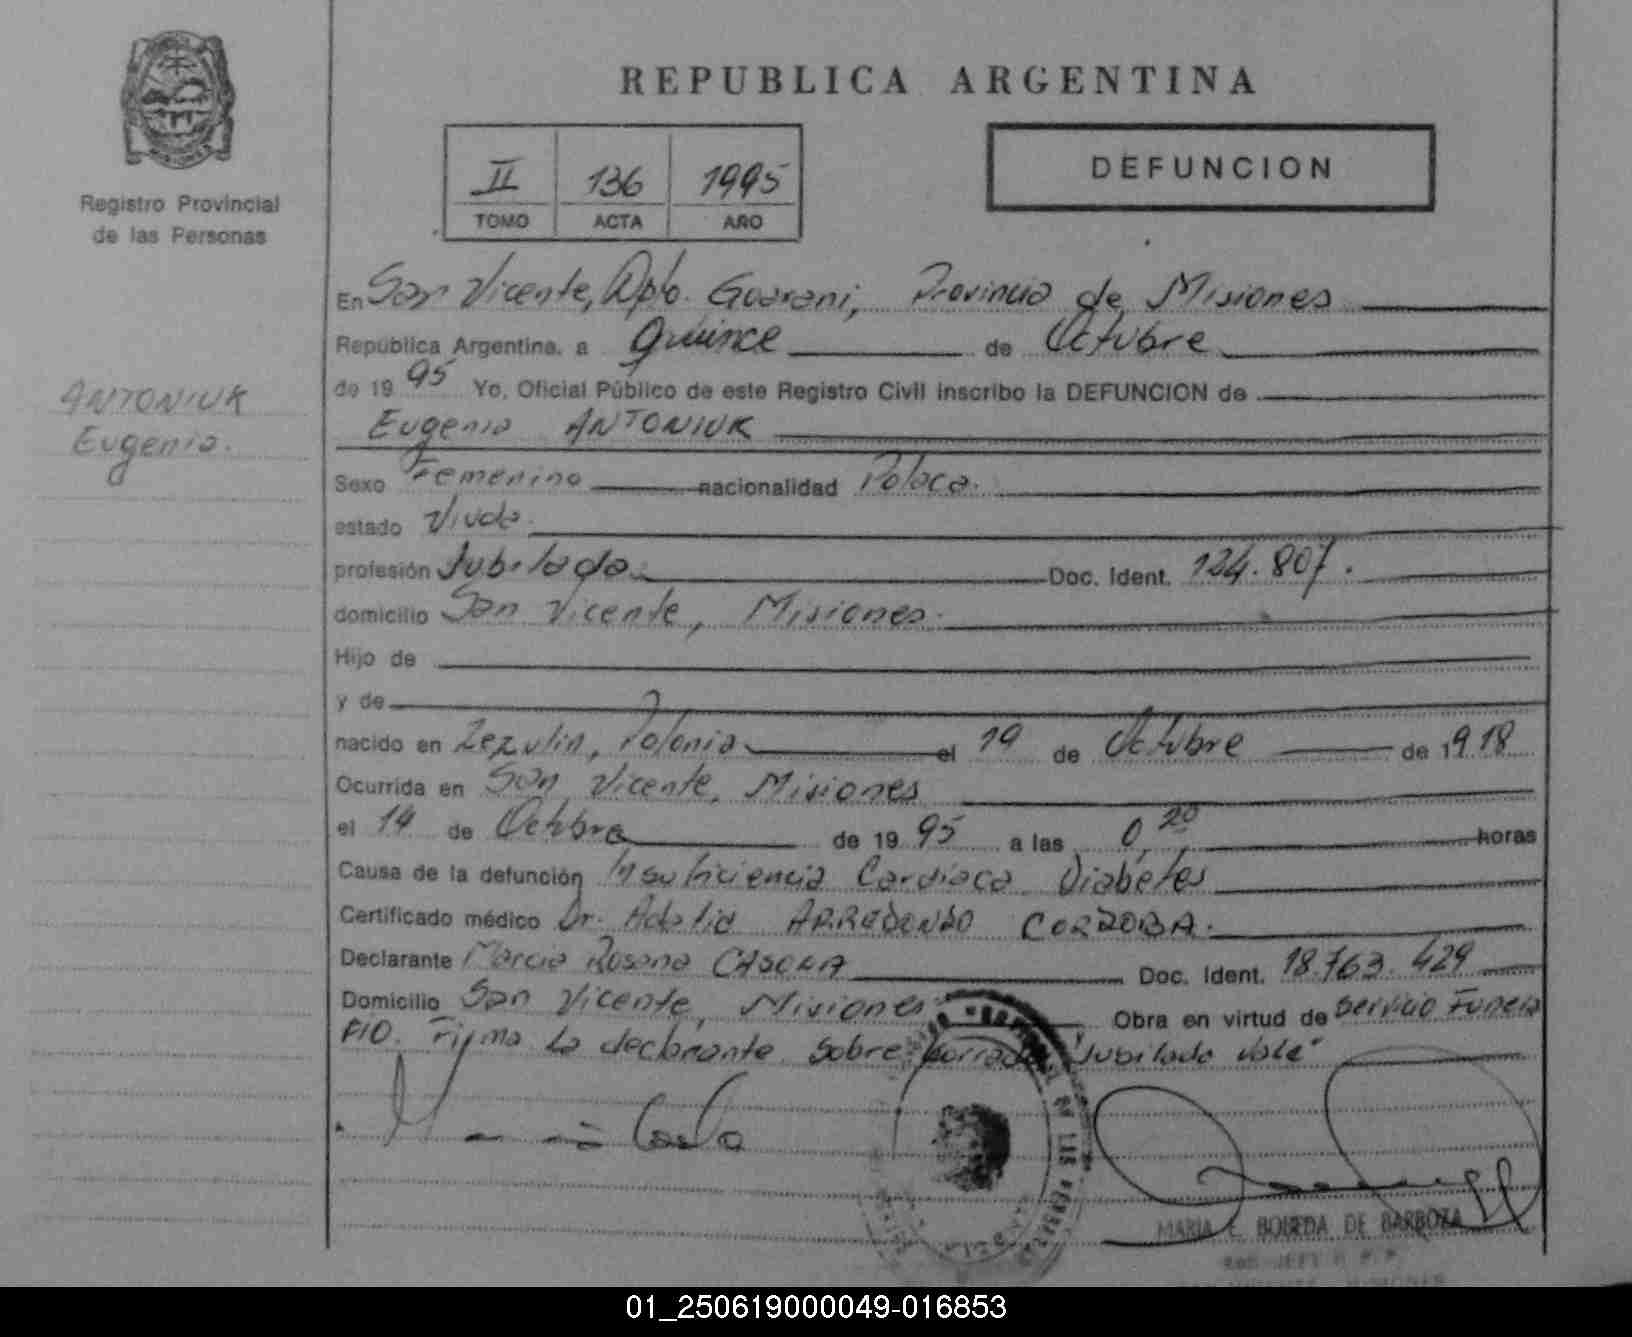 REPUBLICA ARGENTINA
MISIONES
Registro Provincial
de las Personas
II 136 1995
TOMO ACTA AÑO
DEFUNCION
ANTONIUK
Eugenia.
En San Vicente, Dpto. Guarani, Provincia de Misiones
República Argentina, a quince de Octubre
de 19 95 Yo, Oficial Público de este Registro Civil inscribo la DEFUNCION de
Eugenia ANTONIUK
Sexo Femenino nacionalidad Polaca.
estado Viuda.
profesión Jubilada. Doc. Ident. 124.807.
domicilio San Vicente, Misiones.
Hijo de
y de
nacido en Zezulin, Polonia el 19 de Octubre de 1918
Ocurrida en San Vicente, Misiones
el 14 de Octubre de 19 95 a las 0,20 horas
Causa de la defunción Insuficiencia Cardiaca Diabetes
Certificado médico Dr. Adolio ARREDONDO CORDOBA.
Declarante Marcia Rosana CASOLA Doc. Ident. 18.763.429
Domicilio San Vicente, Misiones Obra en virtud de Servicio Funera
rio. Firma la declarante. Sobre borrado "Jubilada vale"
DE LAS PERSONAS
MARIA E. BOVEDA DE BARBOZA
01_250619000049-016853